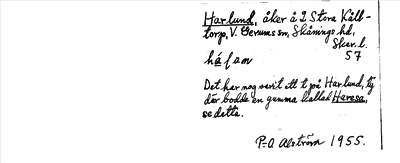 Harlund, åker å 2 Stora Kåll-
torp, V. Gerums sn, Skånings hd,
Skar. l.
57
há ſ an
Det har nog varit ett t på Harlund, ty
där bodde en gumma kallad Haresa,
se detta.
P-O Alström 1955.